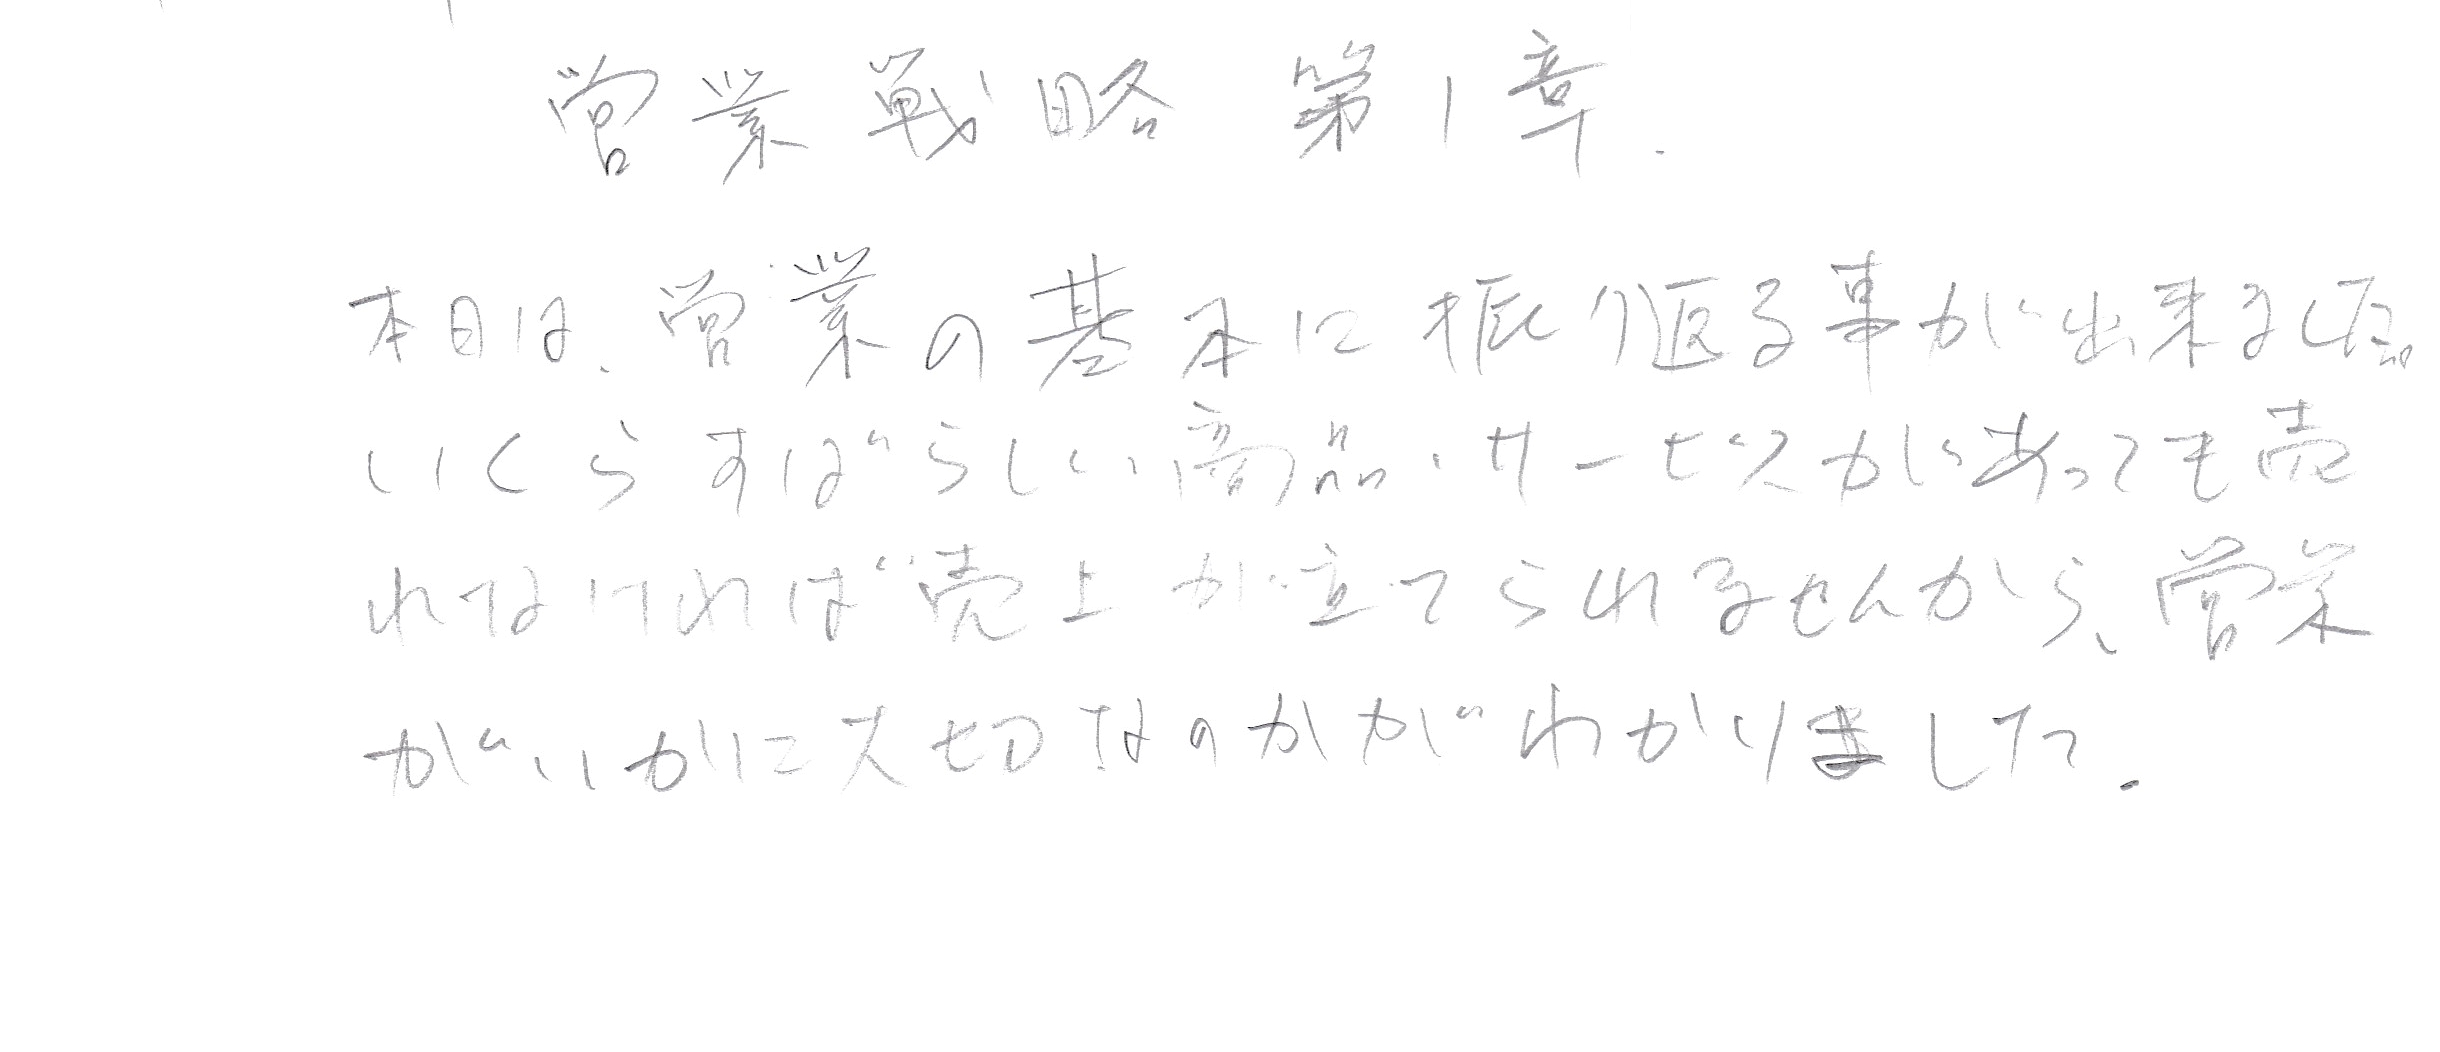 営業戦略 第1章.
本日は、営業の基本に振り返る事が出来ました。
いくらすばらしい商品・サービスがあっても売
れなければ売上が立てられませんから、営業
がいかに大切なのかがわかりました.